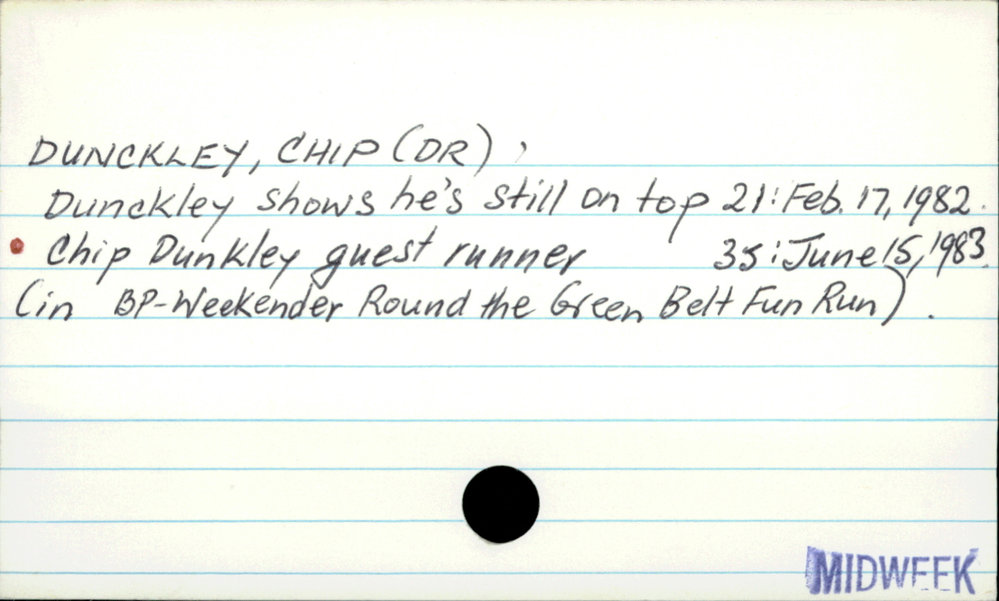 DUNCKLEY, CHIP (DR),
Dunckley shows he's still on top 21: Feb. 17, 1982.
Chip Dunkley guest runner 35: June 15, 1983.
(in BP-Weekender Round the Green Belt Fun Run).
MIDWEEK